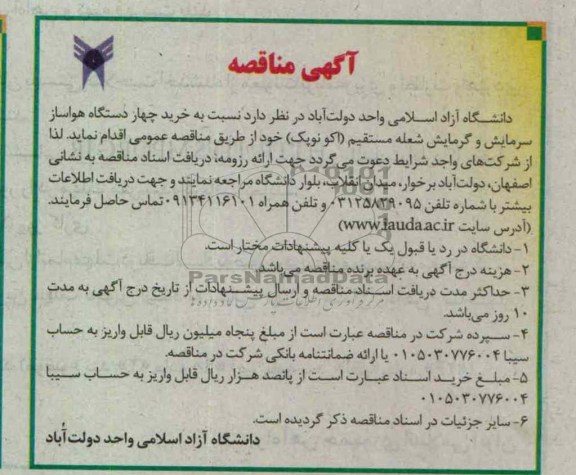 آگهی مناقصه
دانشگاه آزاد اسلامی واحد دولت‌آباد در نظر دارد نسبت به خرید چهار دستگاه هواساز
سرمایش و گرمایش شعله مستقیم (اکو نوپک) خود از طریق مناقصه عمومی اقدام نماید. لذا
از شرکت‌های واجد شرایط دعوت می‌گردد جهت ارائه رزومه، دریافت اسناد مناقصه به نشانی
اصفهان، دولت‌آباد برخوار، میدان انقلاب، بلوار دانشگاه مراجعه نمایند و جهت دریافت اطلاعات
بیشتر با شماره تلفن ۰۳۱۲۵۸۳۹۰۹۵ و تلفن همراه ۰۹۱۳۴۱۱۶۱۰۱ تماس حاصل فرمایند.
(آدرس سایت www.iauda.ac.ir)
۱- دانشگاه در رد یا قبول یک یا کلیه پیشنهادات مختار است.
۲- هزینه درج آگهی به عهده برنده مناقصه می‌باشد.
ParsNamadData
۳- حداکثر مدت دریافت اسناد مناقصه و ارسال پیشنهادات از تاریخ درج آگهی به مدت
۱۰ روز می‌باشد.
۴- سپرده شرکت در مناقصه عبارت است از مبلغ پنجاه میلیون ریال قابل واریز به حساب
سیبا ۰۱۰۵۰۳۰۷۷۶۰۰۴ یا ارائه ضمانتنامه بانکی شرکت در مناقصه.
۵- مبلغ خرید اسناد عبارت است از پانصد هزار ریال قابل واریز به حساب سیبا
۰۱۰۵۰۳۰۷۷۶۰۰۴
۶- سایر جزئیات در اسناد مناقصه ذکر گردیده است.
دانشگاه آزاد اسلامی واحد دولت‌آباد